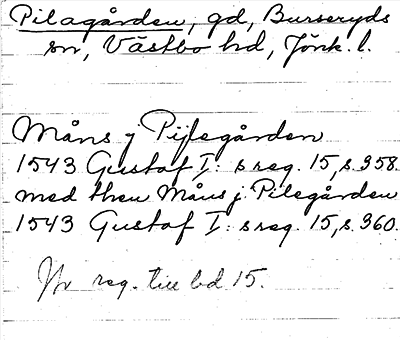 Pilagården, gd, Burseryds
sn, Västbo hd, Jönk. l.
Måns j Pijlegården
1543 Gustaf I: s reg. 15, s. 358.
med then Måns j Pilegården
1543 Gustaf I: s reg. 15, s. 360.
reg. till bd 15.